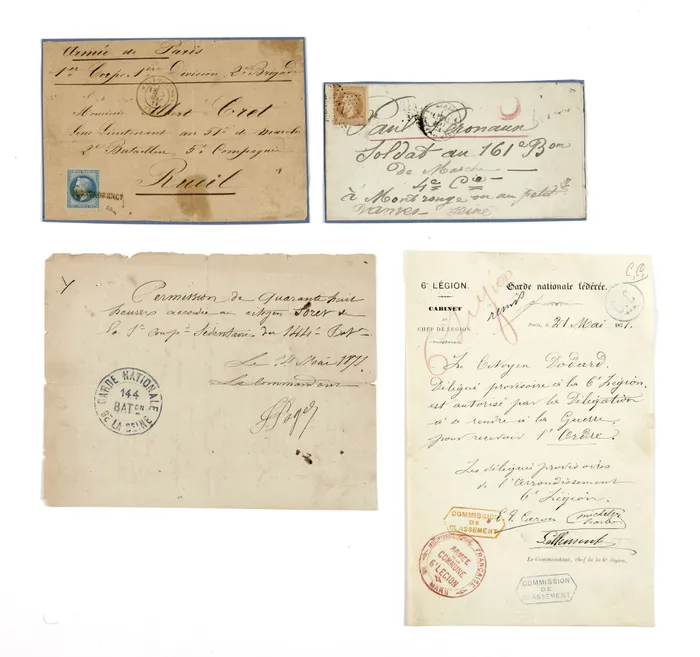 Armée de Paris
1er Corps 1ère Division 2e Brigade
Monsieur Albert
Sous Lieutenant au 51e de marche
2e Bataillon 5e Compagnie
Rueil
Paul
Soldat au 161e Bon
de Marche
4e Cie
à Montrouge ou au petit
Vanves Seine
Permission de Quarante huit
heures accordée au citoyen Soret de
la 1e comp Sédentaire du 144e Bat
Le 14 Mai 1871
Le Commandant
GARDE NATIONALE
144
BATON
DE LA SEINE
6e LÉGION.
Garde nationale fédérée.
C.C.
CABINET
DU
CHEF DE LÉGION
6 Légion
Paris, 21 Mai 1871.
Le Citoyen Dodard,
Délégué provisoire à la 6e Légion,
est autorisé par la Délégation
à se rendre à la Guerre,
pour recevoir l'Ordre.
Les délégués provisoires
de l'arrondissement
6e Légion.
COMMISSION
DE
CLASSEMENT
Lallement
RÉPUBLIQUE FRANÇAISE
ARMÉE
COMMUNE
6e LÉGION
MARS
Le Commandant, chef de la 6e légion,
COMMISSION
DE
CLASSEMENT